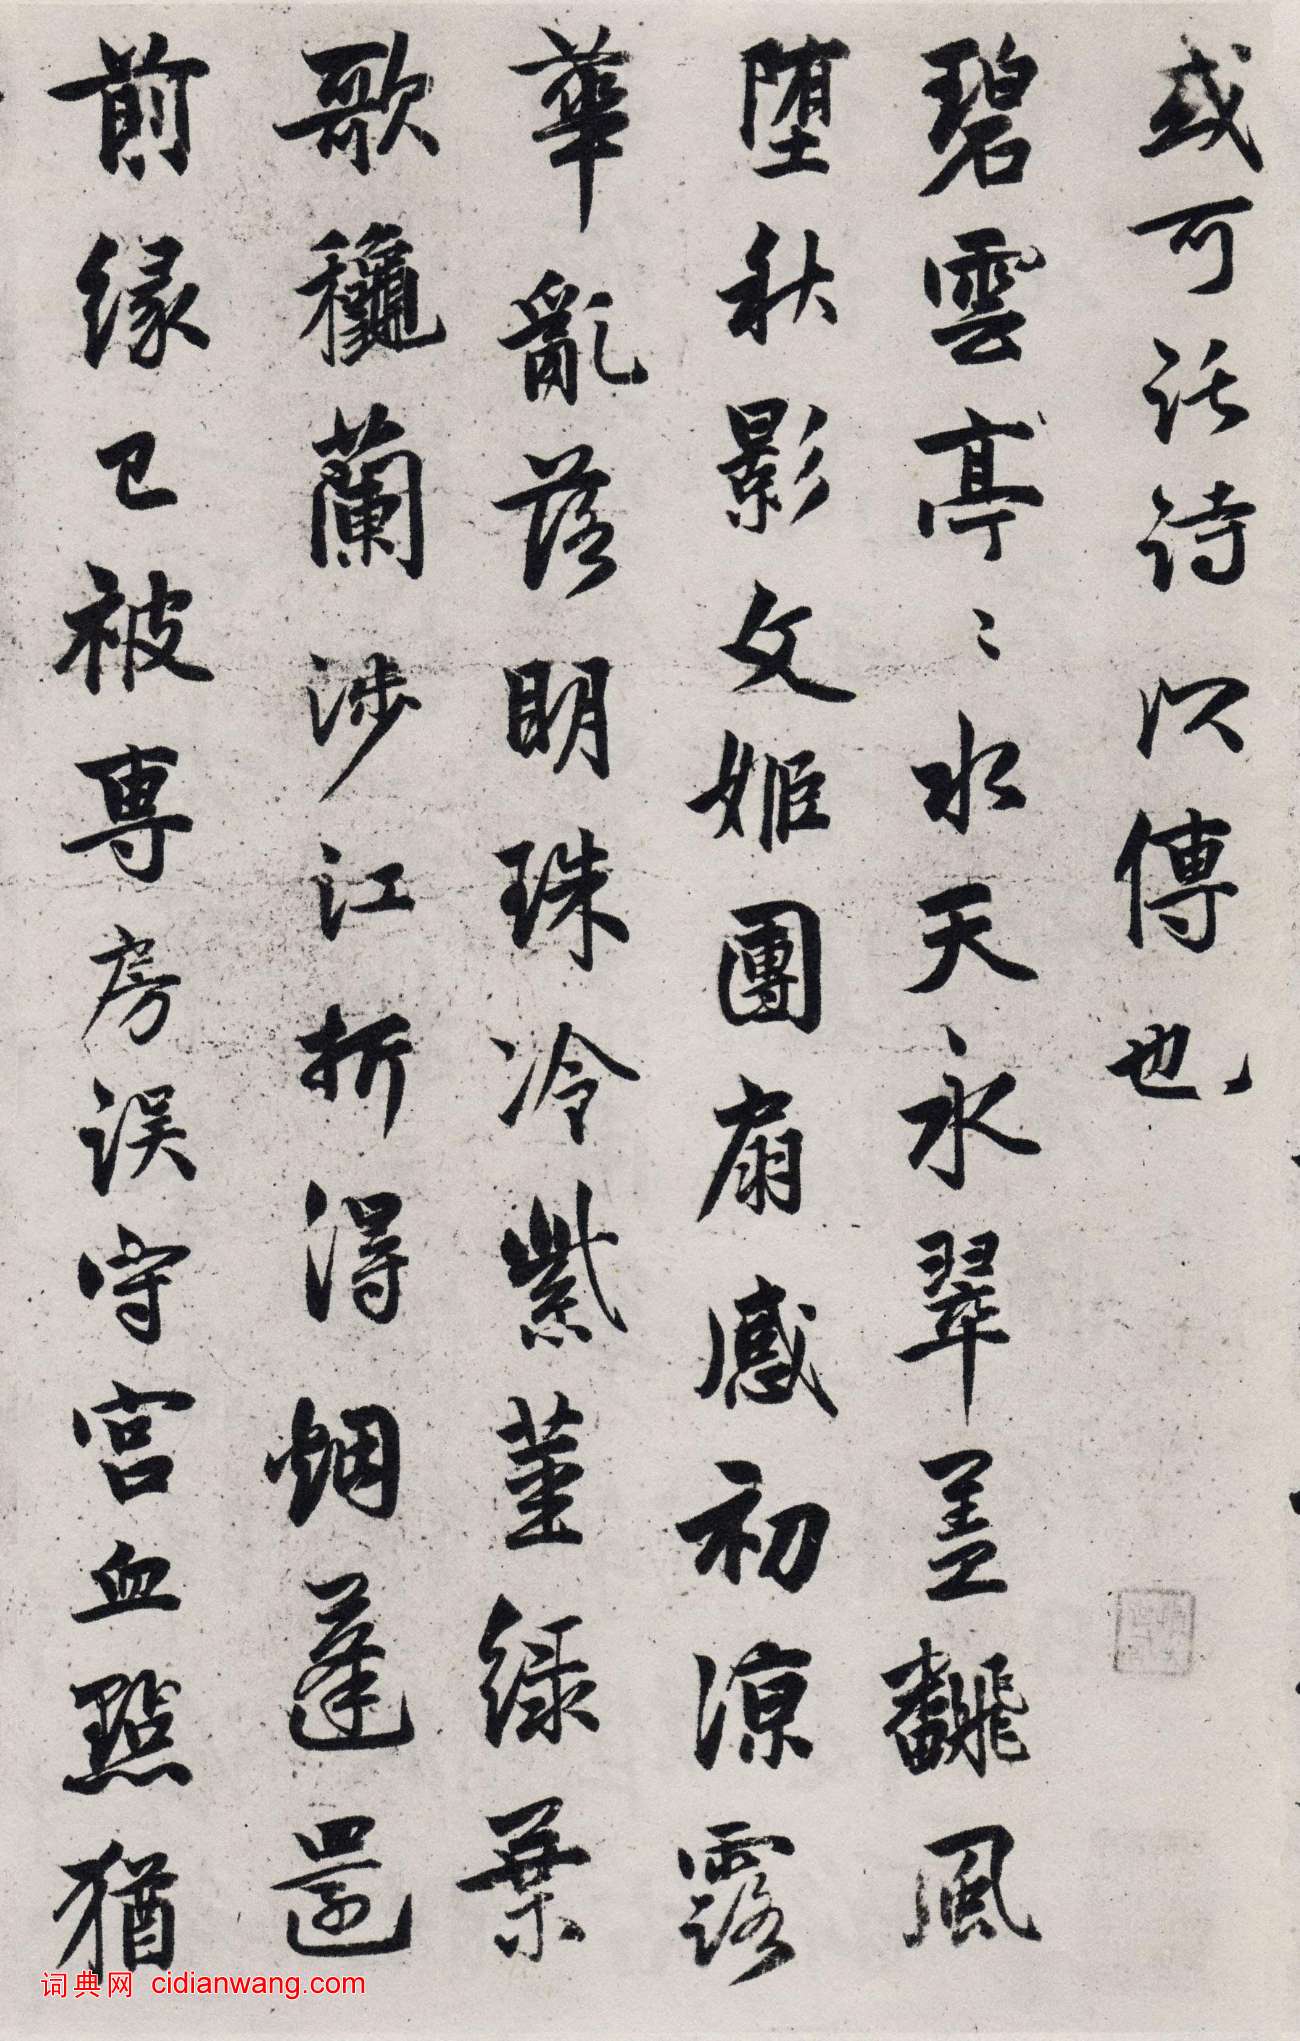 或可託诗以傳也
碧雲亭〻水天永翠盖翻风
堕秋影文姬團扇感初涼露
華亂落明珠冷紫茎緑葉
歌穐蘭涉江折得烟蓬還
前缘已被専房误守宫血點猶
词典网 cidianwang.com